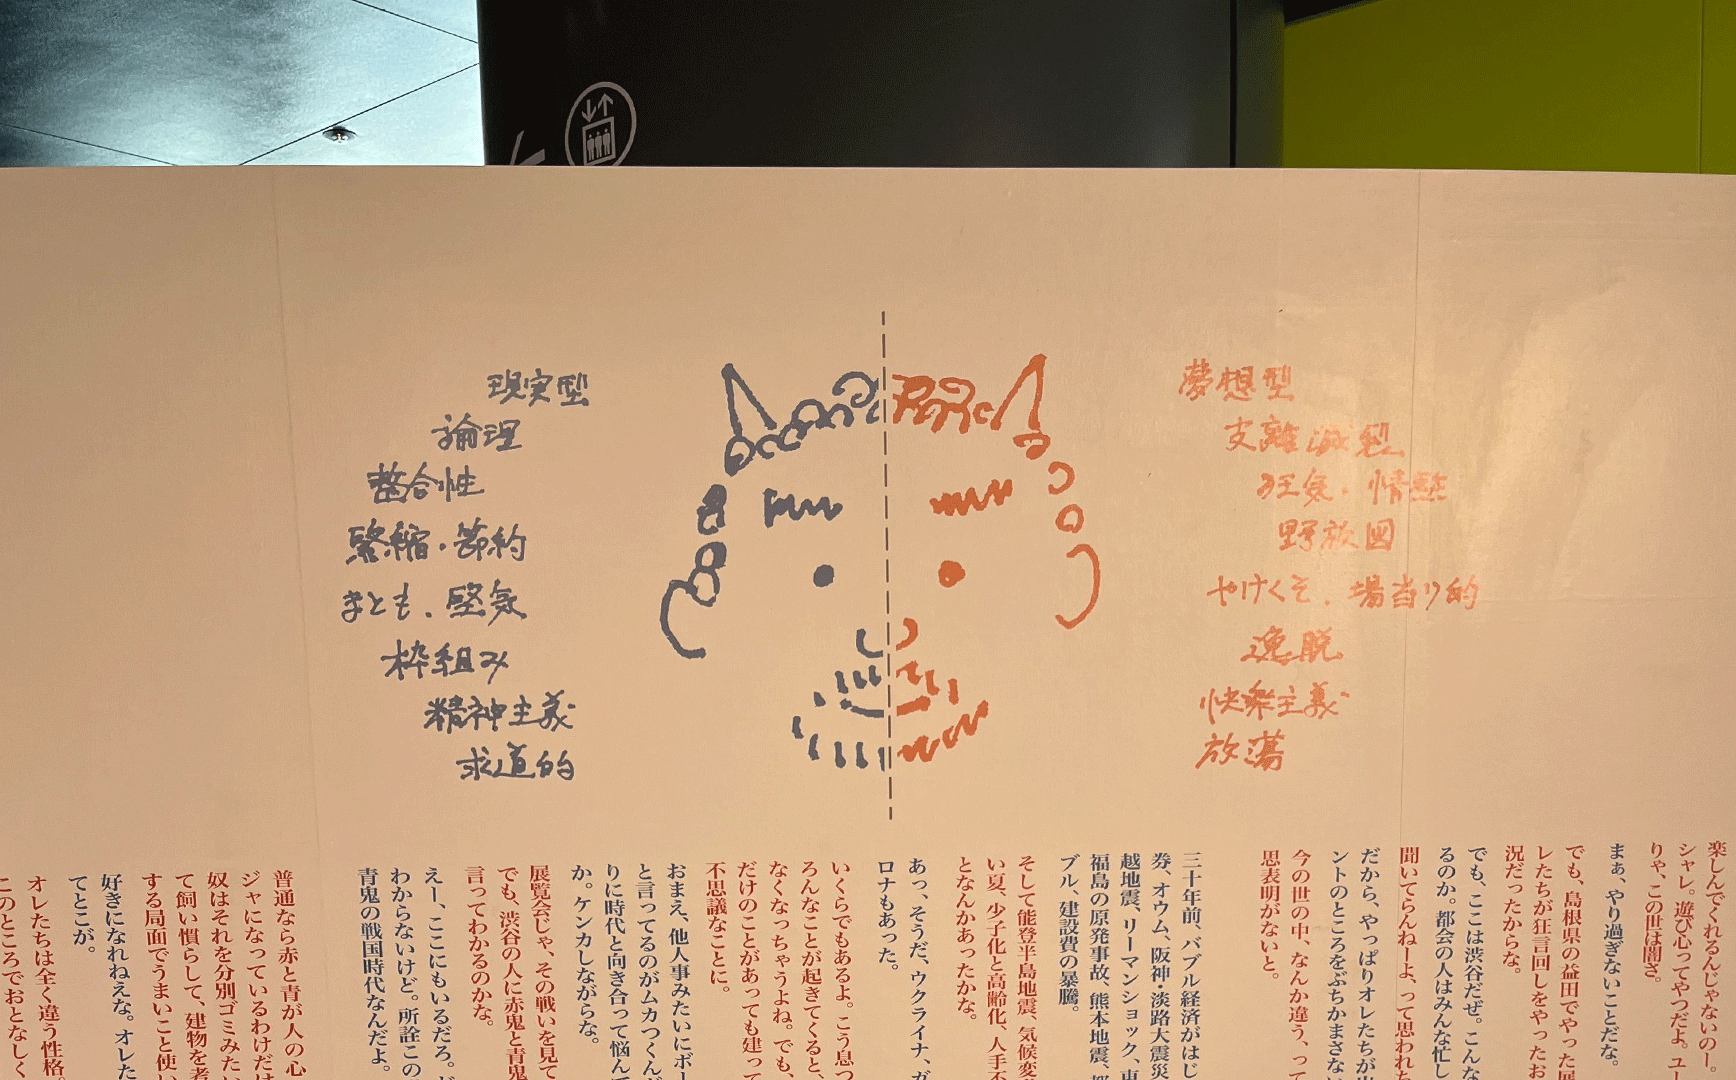 現実型
論理
整合性
緊縮・節約
まとも、堅気
枠組み
精神主義
求道的
夢想型
支離滅裂
狂気・情熱
野放図
やけくそ、場当り的
逸脱
快楽主義
放蕩
楽しんでくれるんじゃないのー。
シャレ。遊び心ってやつだよ。ユー
りゃ、この世は闇さ。
まぁ、やり過ぎないことだな。
でも、島根県の益田でやった展
レたちが狂言回しをやったお
況だったからな。
でも、ここは渋谷だぜ。こんな
るのか。都会の人はみんな忙し
聞いてらんねーよ、って思われち
だから、やっぱりオレたちが出
ントのところをぶちかまさない
今の世の中、なんか違う、って
思表明がないと。
三十年前、バブル経済がはじ
券、オウム、阪神・淡路大震災
越地震、リーマンショック、東
福島の原発事故、熊本地震、
ブル、建設費の暴騰。
そして能登半島地震、気候変
い夏、少子化と高齢化、人手不
となんかあったかな。
あっ、そうだ、ウクライナ、ガ
ロナもあった。
いくらでもあるよ。こう息つ
ろんなことが起きてくると、
なくなっちゃうよね。でも、
だけのことがあっても建って
不思議なことに。
おまえ、他人事みたいにボー
と言ってるのがムカつくんだ
りに時代と向き合って悩んで
か。ケンカしながらな。
展覧会じゃ、その戦いを見て
でも、渋谷の人に赤鬼と青鬼
言ってわかるのかな。
えー、ここにもいるだろ。
わからないけど。所詮この
青鬼の戦国時代なんだよ。
普通なら赤と青が人の心
ジャになっているわけだけ
奴はそれを分別ゴミみたい
て飼い慣らして、建物を考
する局面でうまいこと使い
好きになれねえな。オレた
てとこが。
オレたちは全く違う性格。
このところでおとなしく